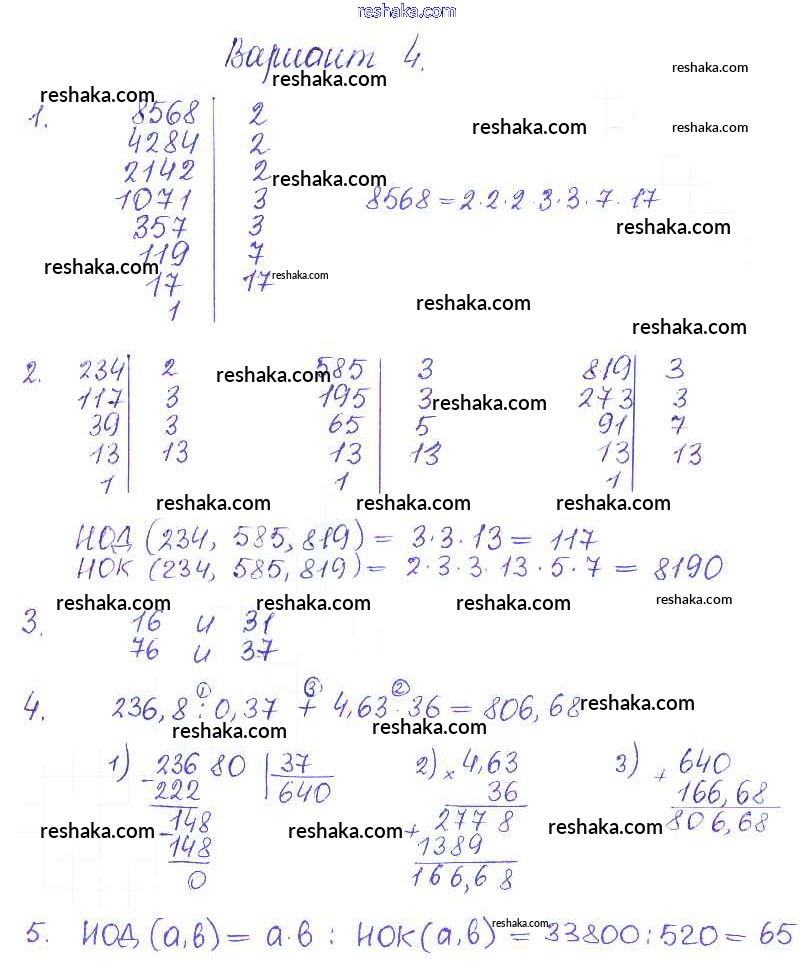 reshaka.com
Вариант 4.
reshaka.com
reshaka.com
reshaka.com
1. 8568 | 2
reshaka.com
reshaka.com
4284 | 2
2142 | 2
reshaka.com
1071 | 3
8568 = 2·2·2·3·3·7·17
357 | 3
reshaka.com
119 | 7
reshaka.com
17 | 17
reshaka.com
1
reshaka.com
reshaka.com
2. 234 | 2 585 | 3 819 | 3
reshaka.com
117 | 3 195 | 3 273 | 3
reshaka.com
39 | 3 65 | 5 91 | 7
13 | 13 13 | 13 13 | 13
1 1 1
reshaka.com reshaka.com reshaka.com
НОД (234, 585, 819) = 3·3·13 = 117
НОК (234, 585, 819) = 2·3·3·13·5·7 = 8190
reshaka.com reshaka.com reshaka.com reshaka.com
3. 16 и 31
76 и 37
1 3 2
4. 236,8 : 0,37 + 4,63·36 = 806,68
reshaka.com
reshaka.com reshaka.com
1) 23680 | 37 2) × 4,63 3) + 640
- 222 640 36 166,68
- 148 + 2778 806,68
reshaka.com reshaka.com reshaka.com
148 1389
0 166,68
5. НОД (а,в) = а·в : НОК (а,в) = 33800:520 = 65
reshaka.com